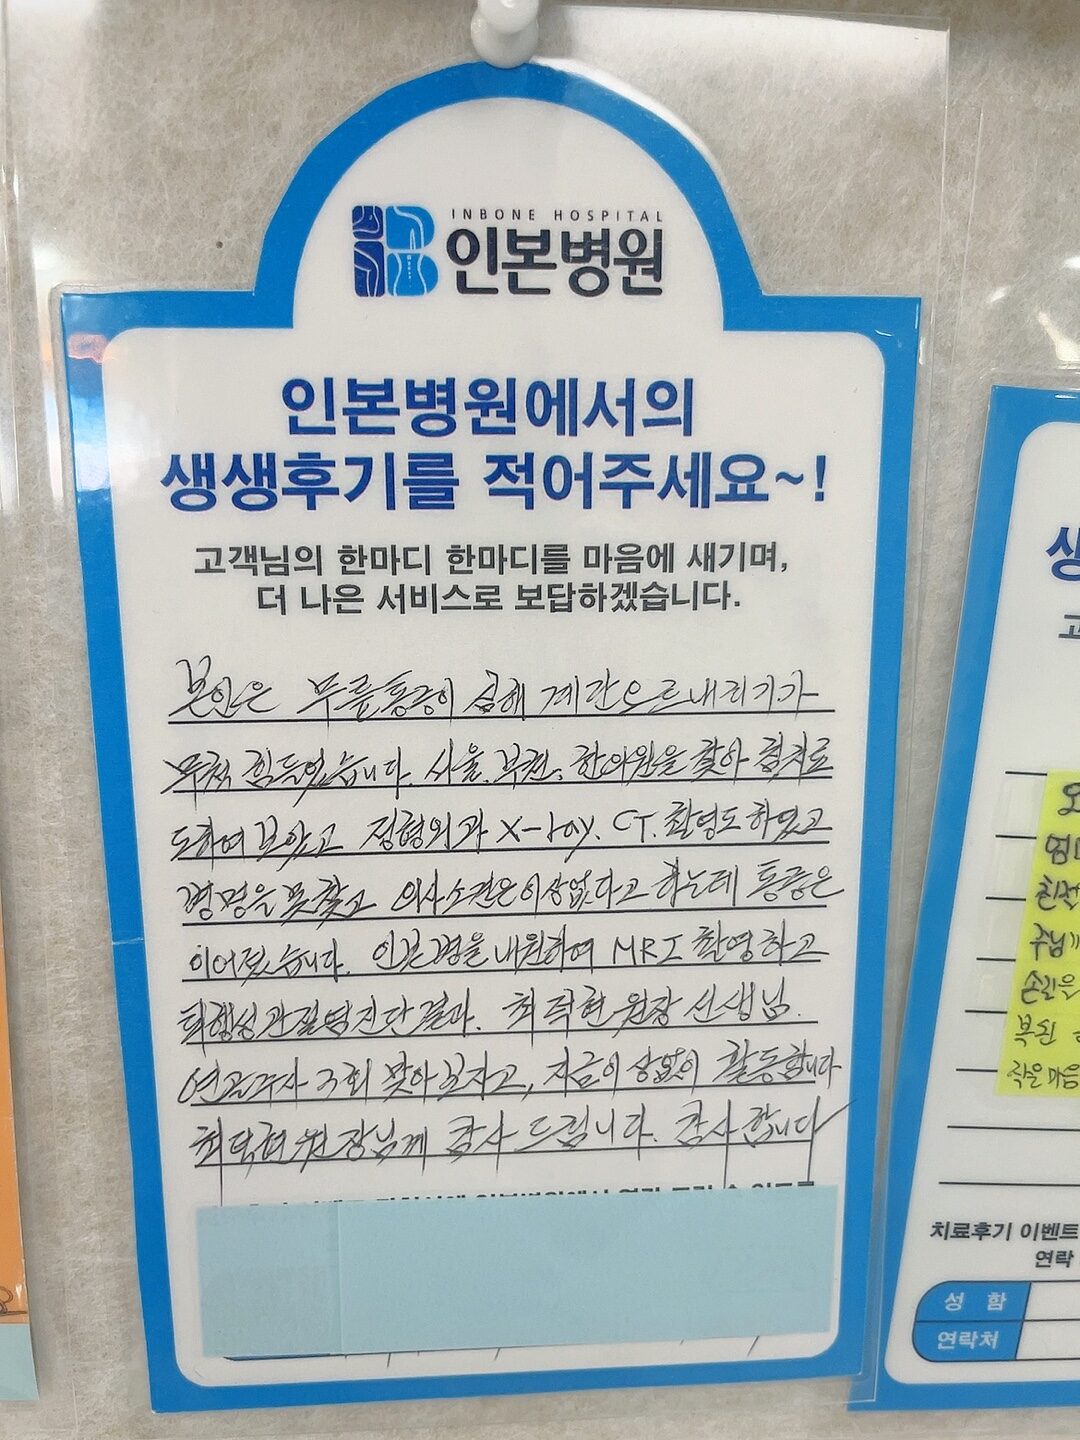 INBONE HOSPITAL
인본병원
인본병원에서의
생생후기를 적어주세요~!
고객님의 한마디 한마디를 마음에 새기며,
더 나은 서비스로 보답하겠습니다.
본인은 무릎통증이 심해 계단오르내리기가
무척 힘들었습니다. 서울. 부천. 한의원을 찾아 침치료
도하여 보았고 정형외과 X-ray. CT. 촬영도 하였고
병명을 못찾고 의사소견은 이상없다고 하는데 통증은
이어졌습니다. 인본병을 내원하여 MRI 촬영하고
퇴행성관절염진단결과. 최덕현 원장 선생님.
연골주사 3회 맞아보자고, 지금 이상없이 활동합니다
최덕현 원장님께 감사 드립니다. 감사합니다
생
고
엄마
주님께
손길을
복된
작은 마음
치료후기 이벤트
연락
성 함
연락처